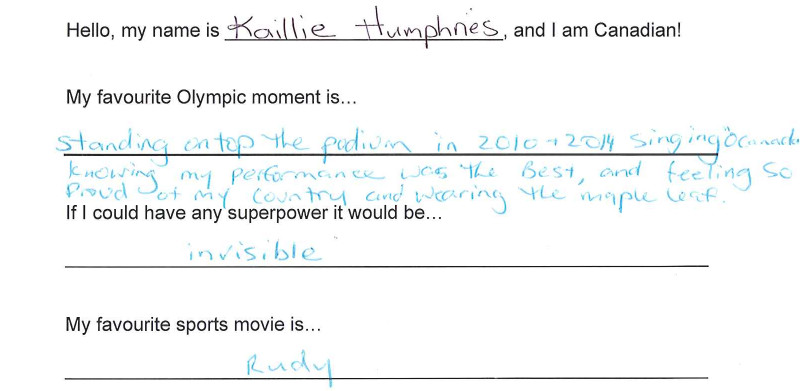 Hello, my name is Kaillie Humphries, and I am Canadian!
My favourite Olympic moment is...
Standing on top the podium in 2010 + 2014 singing "O Canada
knowing my performance was the Best, and feeling so
Proud of my country and wearing the maple leaf.
If I could have any superpower it would be...
invisible
My favourite sports movie is...
Rudy